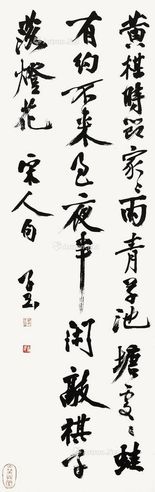 黄楳時節家〻雨青草池塘處〻蛙
有約不来過夜半閒敲棋子
落燈花 宋人句